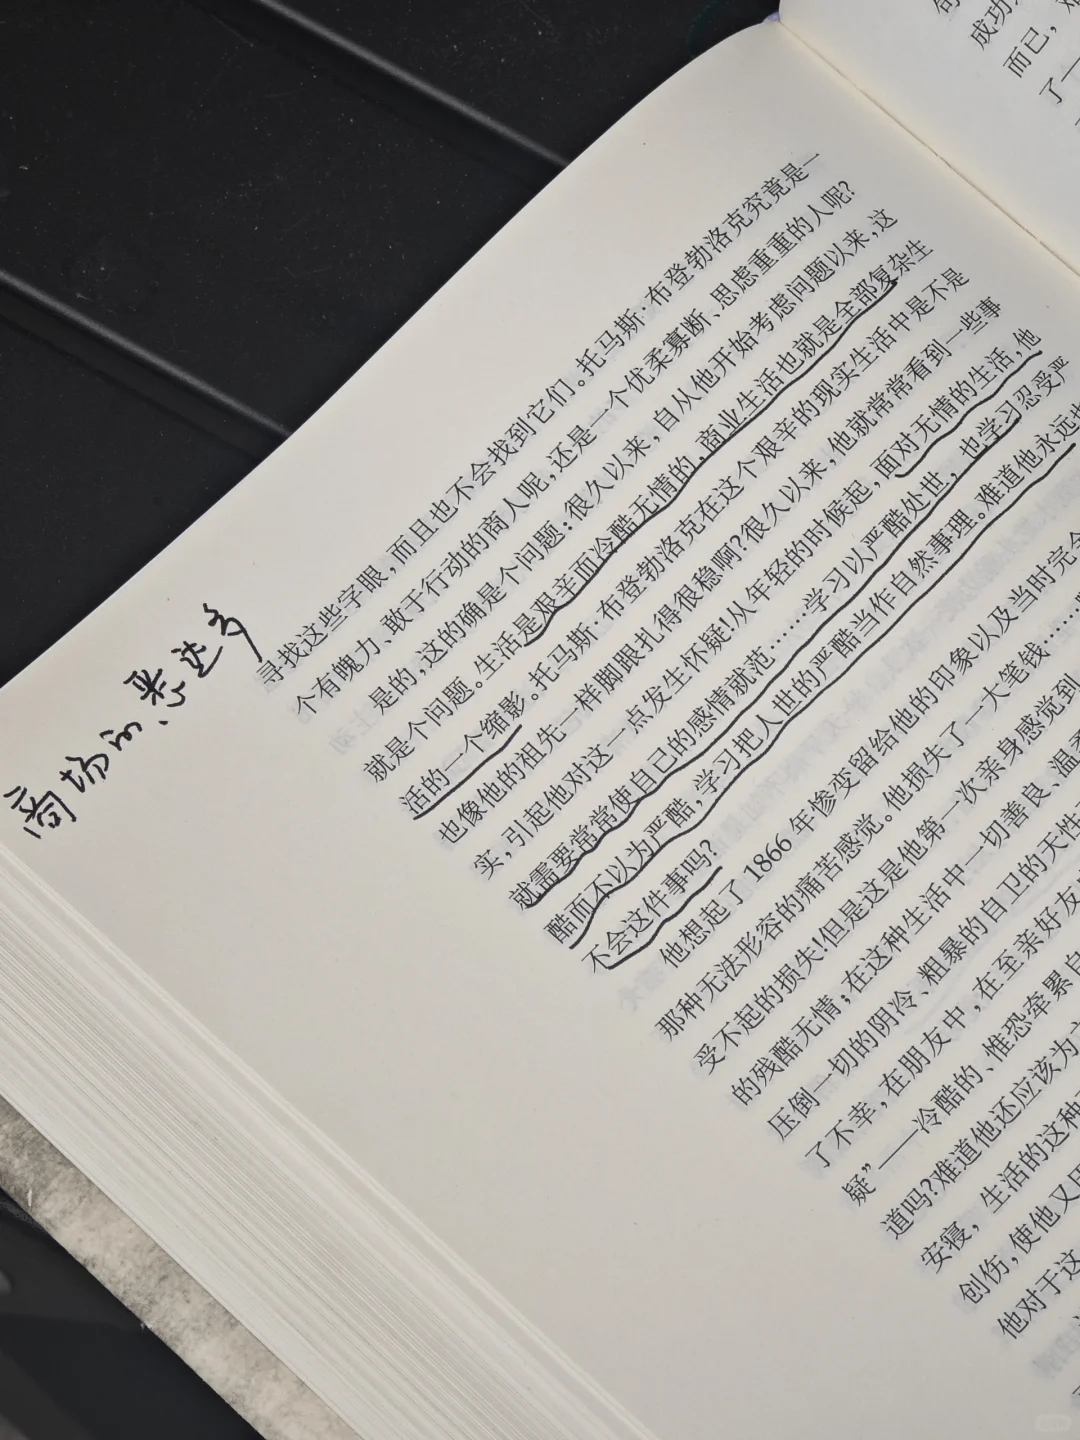 成功
而已，
了一
寻找这些字眼，而且也不会找到它们。托马斯·布登勃洛克究竟是一
个有魄力、敢于行动的商人呢，还是一个优柔寡断、思虑重重的人呢？
是的，这的确是个问题：很久以来，自从他开始考虑问题以来，这
就是个问题。生活是艰辛而冷酷无情的，商业生活也就是全部复杂生
活的一个缩影。托马斯·布登勃洛克在这个艰辛的现实生活中是不是
也像他的祖先一样脚跟扎得很稳啊？很久以来，他就常常看到一些事
实，引起他对这一点发生怀疑！从年轻的时候起，面对无情的生活，他
就需要常常使自己的感情就范……学习以严酷处世，也学习忍受严
酷而不以为严酷，学习把人世的严酷当作自然事理。难道他永远也
不会这件事吗？
他想起了1866年惨变留给他的印象以及当时完全
那种无法形容的痛苦感觉。他损失了一大笔钱……
受不起的损失！但是这是他第一次亲身感觉到
的残酷无情；在这种生活中一切善良、温柔
压倒一切的阴冷、粗暴的自卫的天性
了不幸，在朋友中，在至亲好友
疑”——冷酷的、惟恐牵累自
道吗？难道他还应该为
安寝，生活的这种
创伤，使他又
他对于这
商场的、悉达多